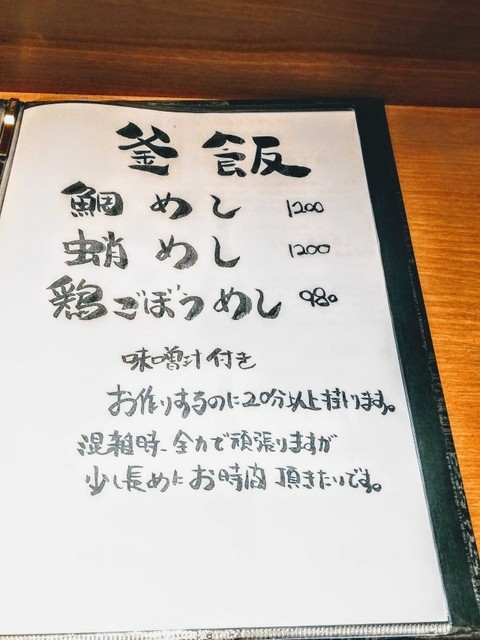 釜飯
鯛めし 1200
蛸めし 1200
鶏ごぼうめし 980
味噌汁付き
お作りするのに20分以上掛ります。
混雑時、全力で頑張りますが
少し長めにお時間頂きたいです。